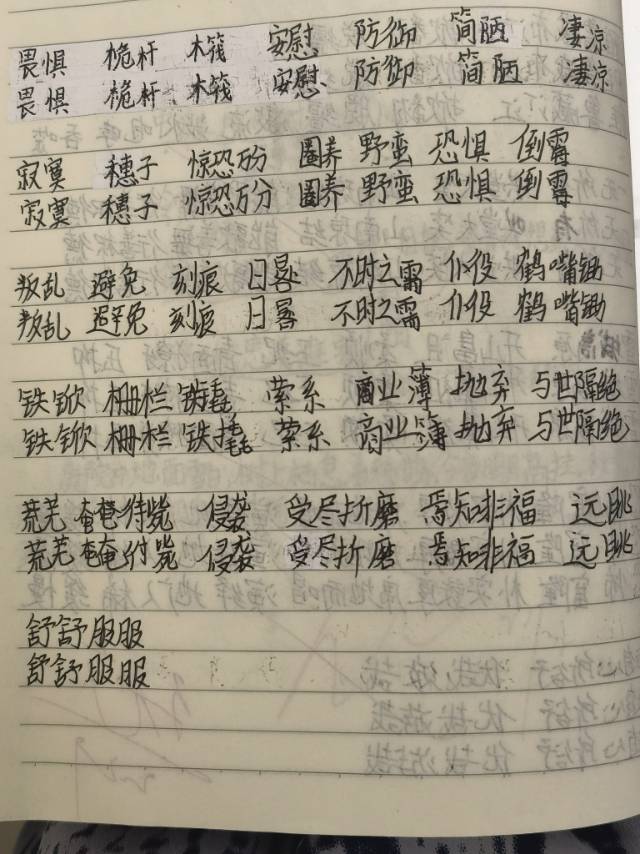 畏惧 桅杆 木筏 安慰 防御 简陋 凄凉
畏惧 桅杆 木筏 安慰 防御 简陋 凄凉
寂寞 穗子 惊恐万分 圈养 野蛮 恐惧 倒霉
寂寞 穗子 惊恐万分 圈养 野蛮 恐惧 倒霉
叛乱 避免 刻痕 日晷 不时之需 仆役 鹤嘴锄
叛乱 避免 刻痕 日晷 不时之需 仆役 鹤嘴锄
铁锨 栅栏 铁撬 萦系 商业簿 抛弃 与世隔绝
铁锨 栅栏 铁撬 萦系 商业簿 抛弃 与世隔绝
荒芜 奄奄待毙 侵袭 受尽折磨 焉知非福 远眺
荒芜 奄奄待毙 侵袭 受尽折磨 焉知非福 远眺
舒舒服服
舒舒服服